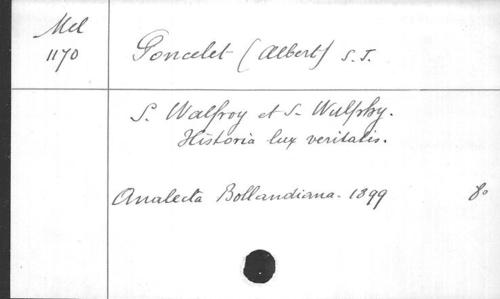 Mel
1170
Poncelet (Albert) S.J.
S. Walfroy et S. Wulphy.
Historia lux veritatis.
Analecta Bollandiana. 1899 8º